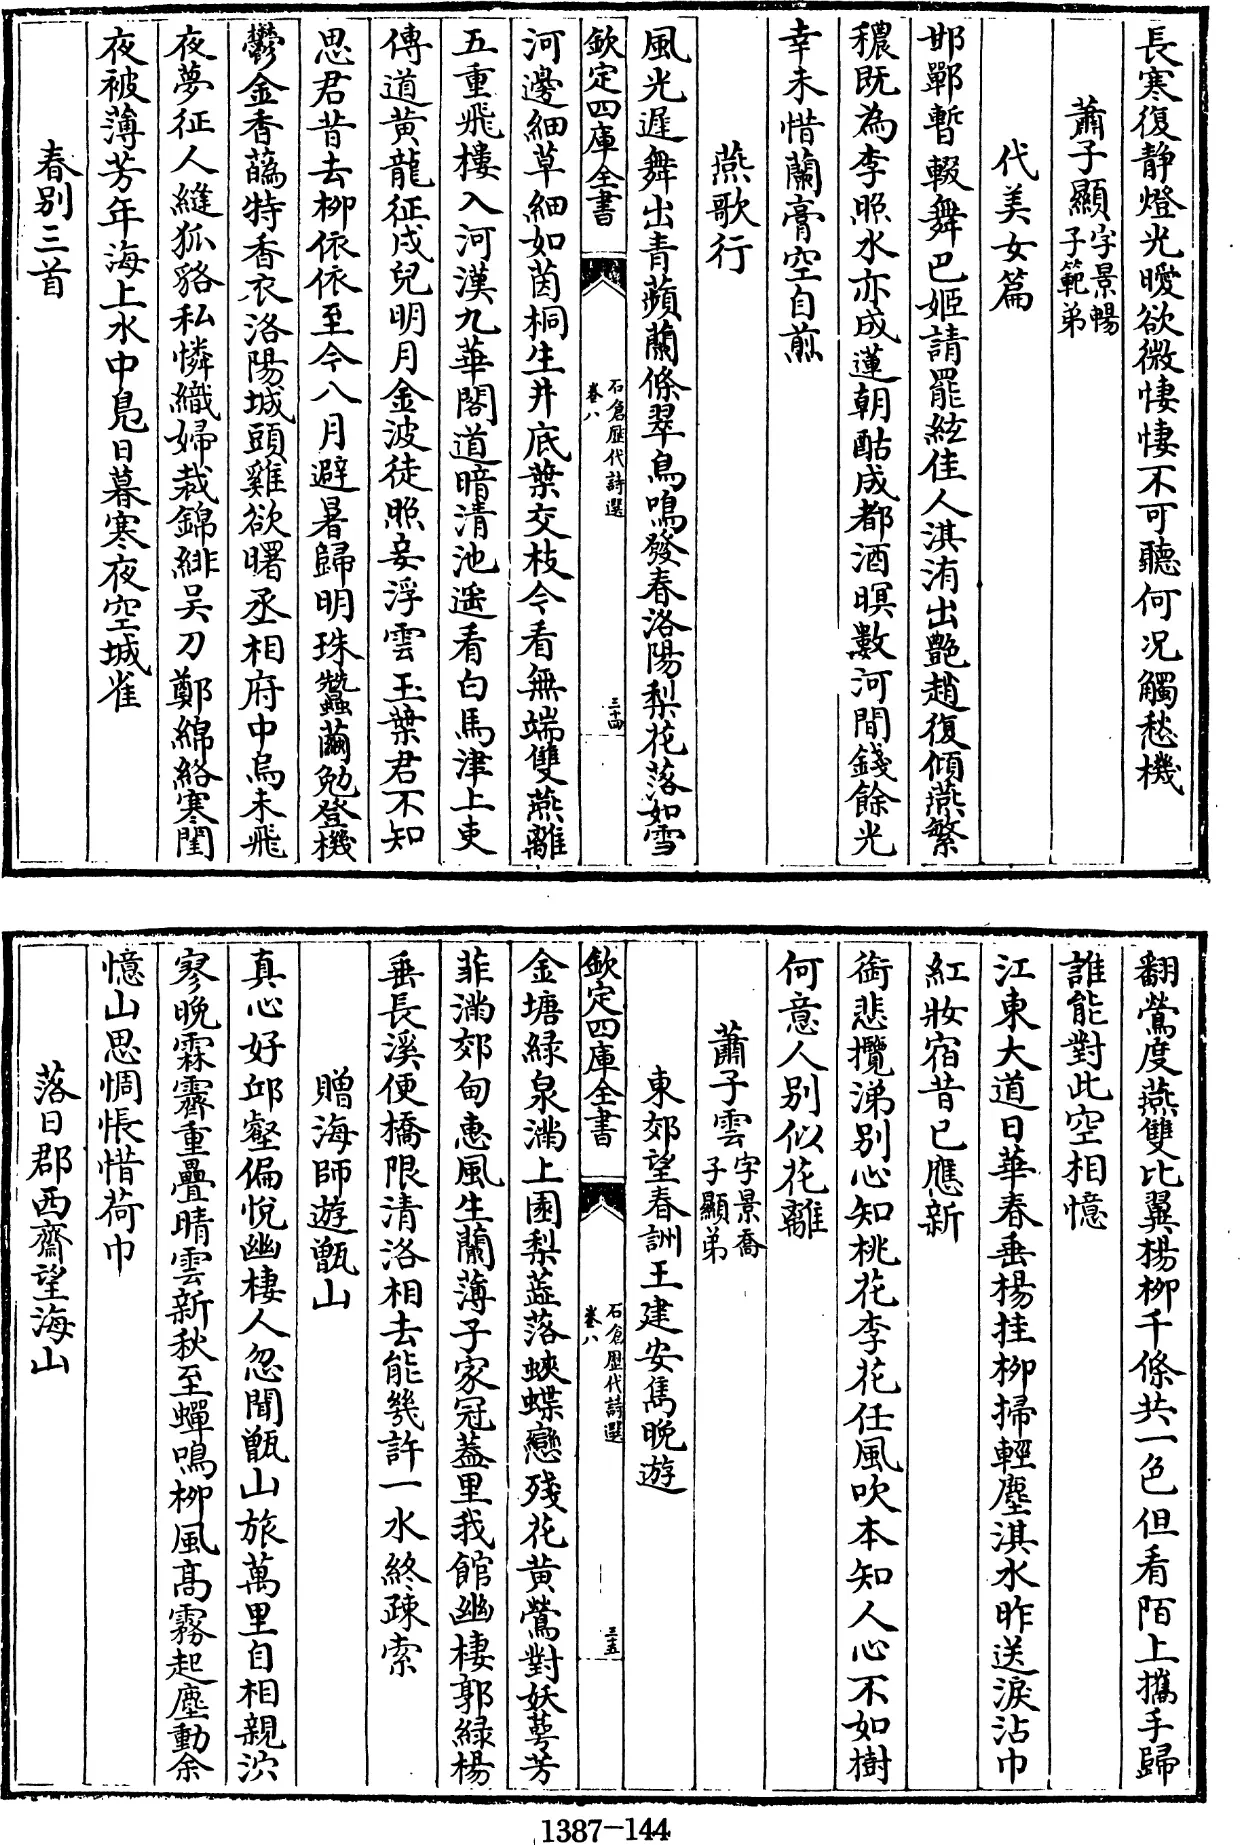 長寒復静燈光曖欲微悽悽不可聽何况觸愁機
蕭子顯字景暢子範弟
代美女篇
邯鄲暫輟舞巴姬請罷絃佳人淇洧出艷趙復傾燕繁
穠既為李照水亦成蓮朝酤成都酒暝數河間錢餘光
幸未惜蘭膏空自煎
燕歌行
風光遲舞出青蘋蘭條翠鳥鳴發春洛陽梨花落如雪
欽定四庫全書
石倉歷代詩選
卷八
三十四
河邊細草細如茵桐生井底葉交枝今看無端雙燕離
五重飛樓入河漢九華閣道暗清池遥看白馬津上吏
傳道黄龍征戍兒明月金波徒照妾浮雲玉葉君不知
思君昔去栁依依至今八月避暑歸明珠蠶繭勉登機
鬱金香蘤特香衣洛陽城頭雞欲曙丞相府中烏未飛
夜夢征人縫狐貉私憐織婦裁錦緋吴刀鄭綿絡寒閨
夜被薄芳年海上水中鳧日暮寒夜空城雀
春别三首
翻鶯度燕雙比翼楊栁千條共一色但看陌上攜手歸
誰能對此空相憶
江東大道日華春垂楊挂栁掃輕塵淇水昨送淚沾巾
紅妝宿昔已應新
銜悲攬涕别心知桃花李花任風吹本知人心不如樹
何意人别似花離
蕭子雲字景喬子顯弟
東郊望春詶王建安雋晚遊
欽定四庫全書
石倉歷代詩選
卷八
三五
金塘緑泉滿上園梨蘂落蛺蝶戀殘花黄鶯對妖萼芳
菲滿郊甸惠風生蘭薄子家冠蓋里我館幽棲郭緑楊
垂長溪便橋限清洛相去能幾許一水終疎索
贈海師遊甑山
真心好邱壑偏悦幽棲人忽聞甑山旅萬里自相親泬
寥晩霖霽重疊晴雲新秋至蟬鳴栁風髙霧起塵動余
憶山思惆悵惜荷巾
落日郡西齋望海山
1387-144